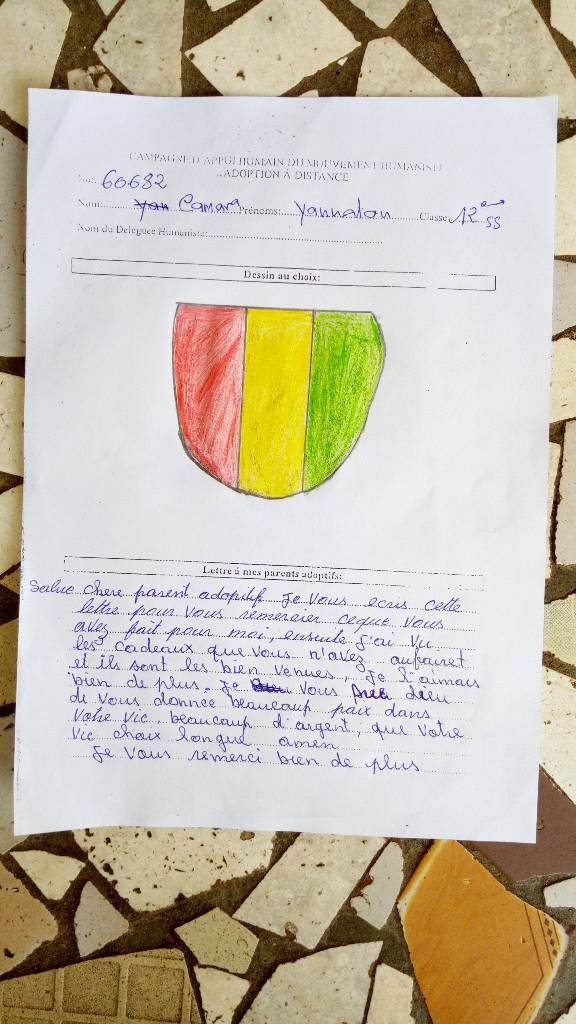 CAMPAGNE D'APPUI HUMAIN DU MOUVEMENT HUMANISTE
ADOPTION À DISTANCE
60682
Nom: Camara Prénoms: Yannaton Classe 12e SS
Nom du Délégué Humaniste:
Dessin au choix:
Lettre à mes parents adoptifs:
Salue chere parent adoptif Je vous ecris cette
lettre pour vous remercier ceque vous
avez fait pour moi, ensuite J'ai vu
les cadeaux que vous n'avez
et ils sont les bien venues, Je l'aimais
bien de plus. Je vous dieu
de vous donnee beaucoup paix dans
votre vie, beaucoup d'argent, que votre
vie choix longue amen
Je vous remerci bien de plus